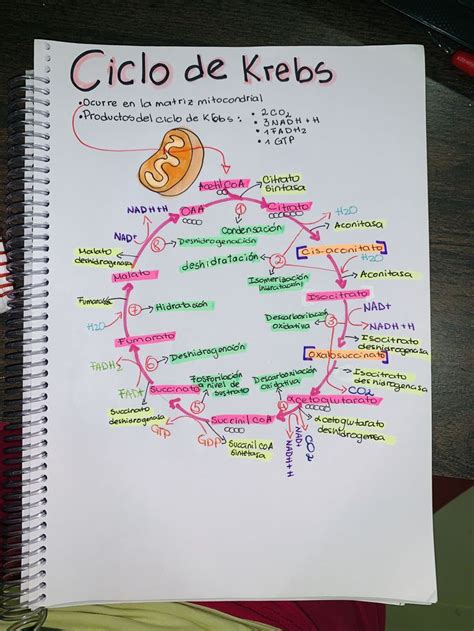 Ciclo de Krebs
•Ocurre en la matriz mitocondrial
•Productos del ciclo de Krebs:
• 2CO2
• 3NADH+H
• 1FADH2
• 1 GTP
Acetil CoA
Citrato sintasa
OAA
1
Citrato
Condensación
NADH+H
NAD+
8
Deshidrogenación
Malato deshidrogenasa
Malato
H2O
Aconitasa
deshidratación
2
Cis-aconitato
H2O
Isomerización
hidratación
Aconitasa
Isocitrato
Descarboxilación
oxidativa
3
NAD+
NADH+H
Isocitrato
deshidrogenasa
Oxalosuccinato
Isocitrato
deshidrogenasa
CO2
Fumarasa
H2O
7
Hidratación
Fumarato
FADH2
6
Deshidrogenación
FAD+
Succinato
Succinato
deshidrogenasa
Fosforilación
a nivel de
sustrato
5
GTP
GDP
Succinil CoA
Succinil CoA
sintetasa
Descarboxilación
oxidativa
4
αcetoglutarato
αcetoglutarato
deshidrogenasa
NAD+
NADH+H
CO2